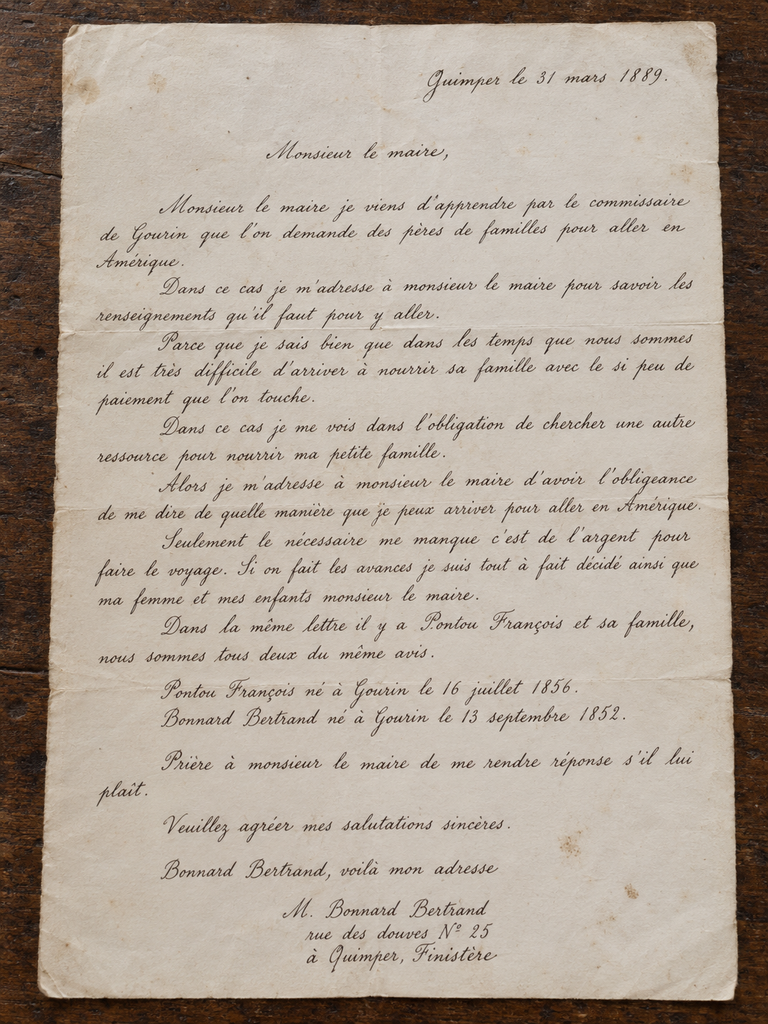 Quimper le 31 mars 1889.
Monsieur le maire,
Monsieur le maire je viens d'apprendre par le commissaire
de Gourin que l'on demande des pères de familles pour aller en
Amérique.
Dans ce cas je m'adresse à monsieur le maire pour savoir les
renseignements qu'il faut pour y aller.
Parce que je sais bien que dans les temps que nous sommes
il est très difficile d'arriver à nourrir sa famille avec le si peu de
paiement que l'on touche.
Dans ce cas je me vois dans l'obligation de chercher une autre
ressource pour nourrir ma petite famille.
Alors je m'adresse à monsieur le maire d'avoir l'obligeance
de me dire de quelle manière que je peux arriver pour aller en Amérique.
Seulement le nécessaire me manque c'est de l'argent pour
faire le voyage. Si on fait les avances je suis tout à fait décidé ainsi que
ma femme et mes enfants monsieur le maire.
Dans la même lettre il y a Pontou François et sa famille,
nous sommes tous deux du même avis.
Pontou François né à Gourin le 16 juillet 1856.
Bonnard Bertrand né à Gourin le 13 septembre 1852.
Prière à monsieur le maire de me rendre réponse s'il lui
plaît.
Veuillez agréer mes salutations sincères.
Bonnard Bertrand, voilà mon adresse
M. Bonnard Bertrand
rue des douves Nº 25
à Quimper, Finistère